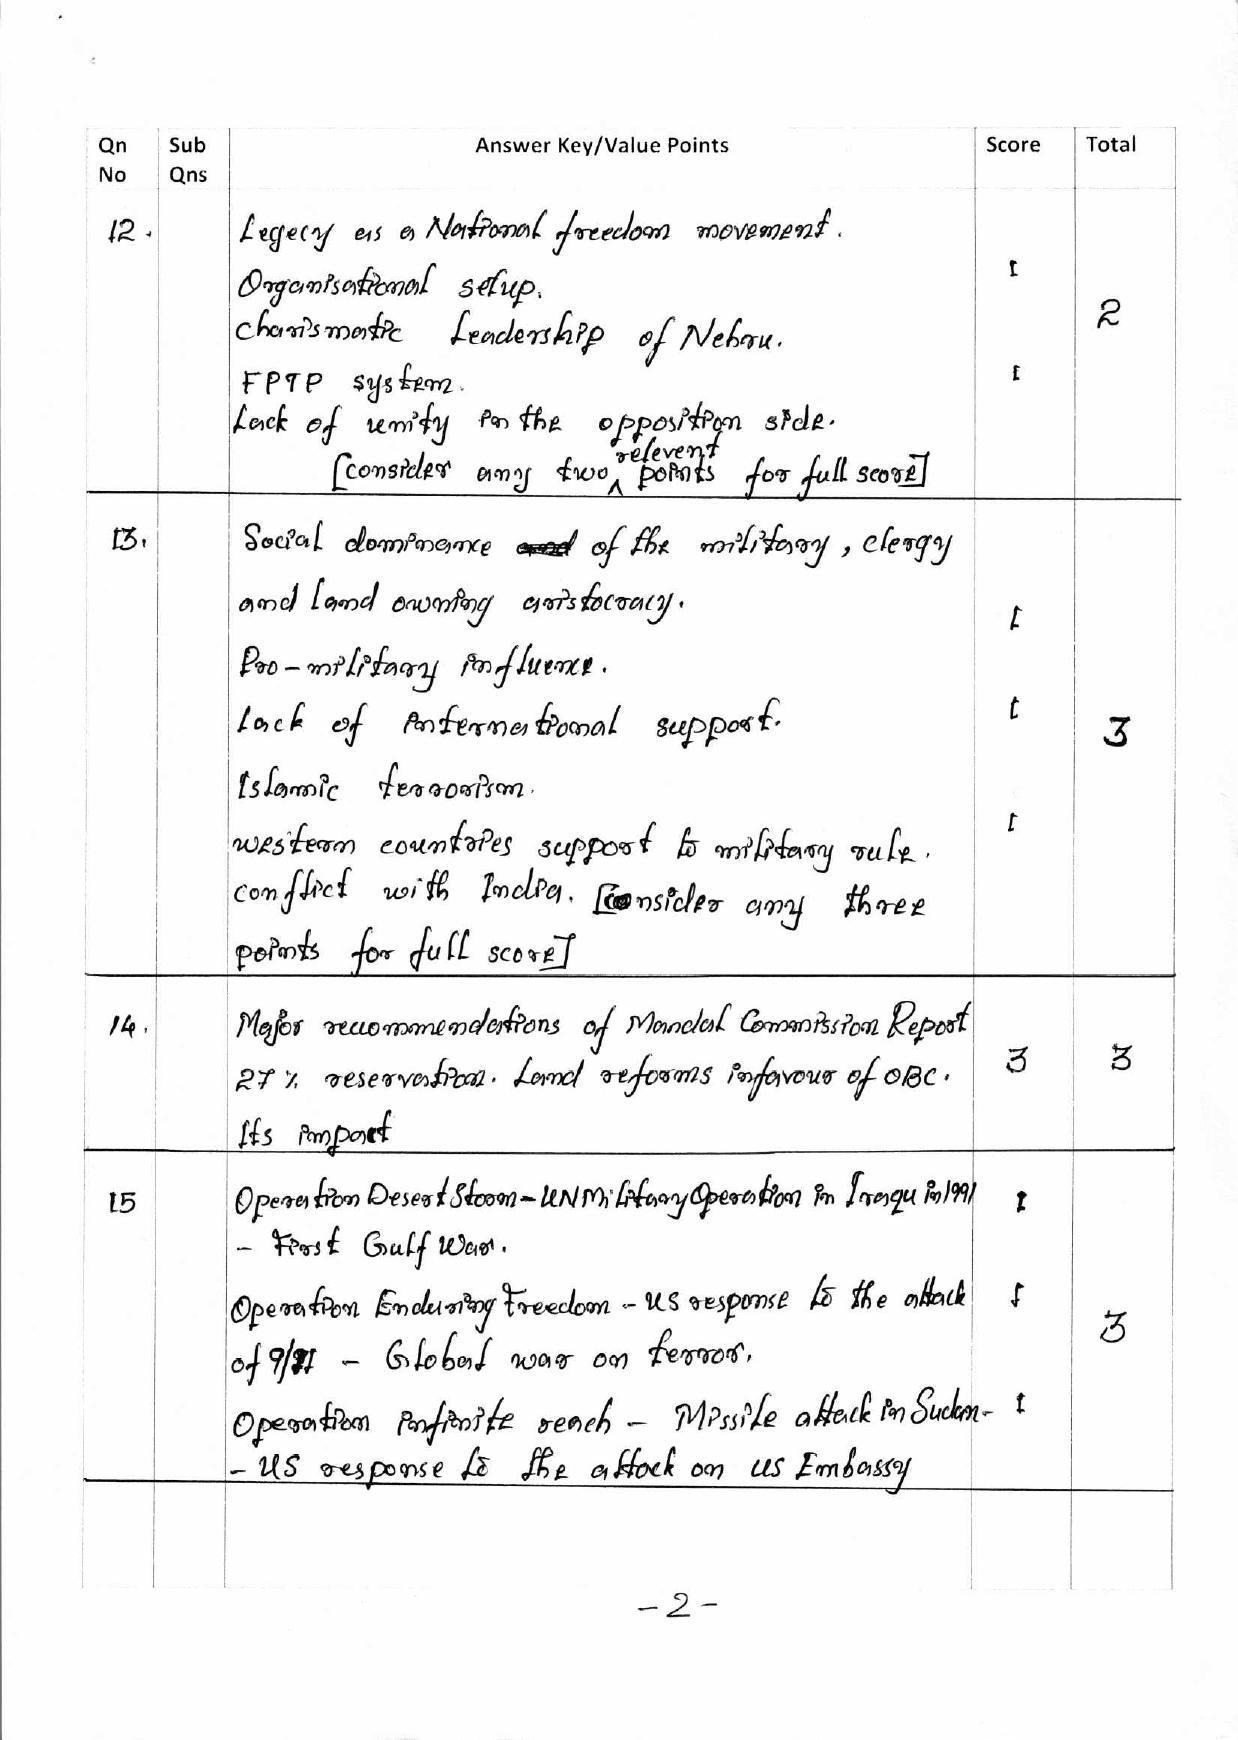 Qn No Sub Qns Answer Key/Value Points Score Total
12. Legecy as a National freedom movement.
Organisational setup. 1
Charismatic Leadership of Nehru. 2
FPTP system. 1
Lack of unity in the opposition side.
relevent
[consider any two ^ points for full score]
13. Social dominance of the military, clergy
and land owning aristocracy. 1
Pro-military influence.
Lack of international support. 1 3
Islamic terrorism.
western countries support to military rule. 1
conflict with India. [Consider any three
points for full score]
14. Major recommendations of Mandal Commission Report
27 % reservation. Land reforms infavour of OBC. 3 3
Its impact
15 Operation Desert Storm - UN Military Operation in Iraqu in 1991 1
- First Gulf War.
Operation Enduring Freedom - US response to the attack 1
of 9/11 - Global war on terror. 3
Operation infinite reach - Missile attack in Sudan- 1
- US response to the attack on us Embassy
-2-